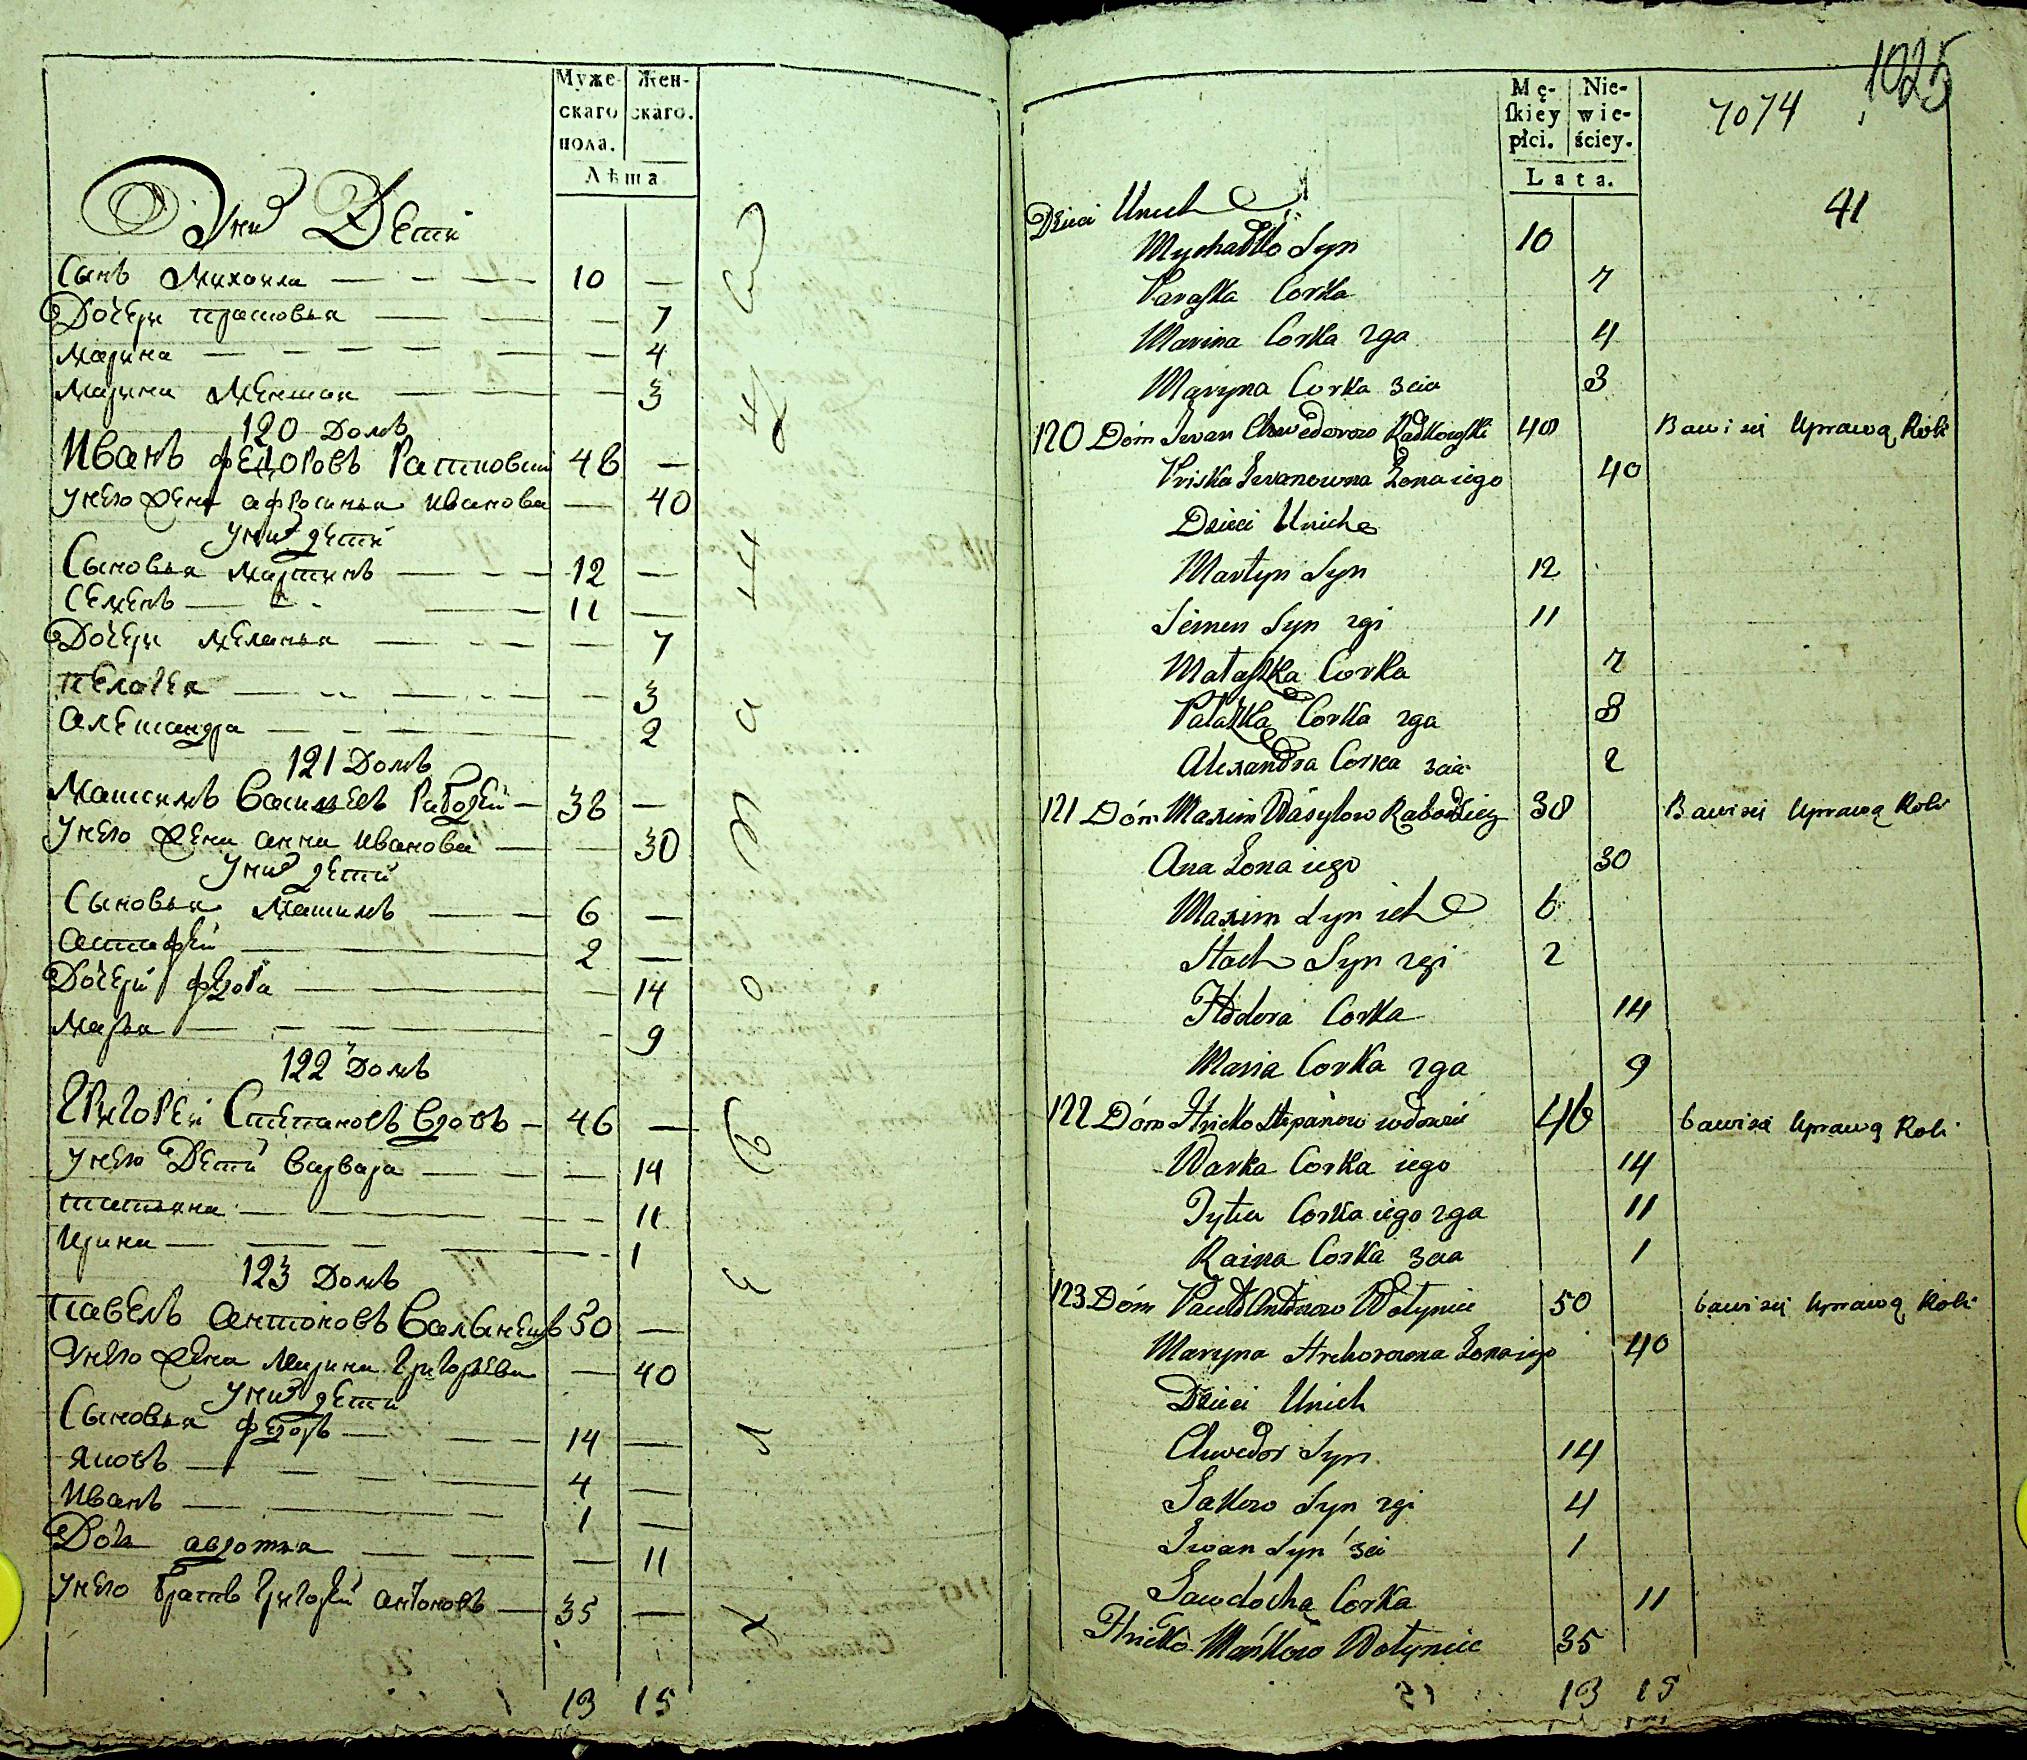 Муже-
скаго
пола.
Жен-
скаго.
Лѣта
У них Дети
Сынъ Михаила — 10 —
Дочери прасковья — — 7
Марина — — 4
Марина Меншая — — 3
120 Домъ
Иванъ федоровъ Ратковский 48 —
У него жена афросинья Иванова — 40
У них дети
Сыновья Мартинъ — 12 —
Семенъ — 11 —
Дочери Меланья — — 7
пелагея — — 3
Александра — 2
121 Домъ
Максимъ Васильевъ Рабодзей — 38 —
У него жена анна иванова — — 30
У них дети
Сыновья Максимъ — 6 —
астафей — 2 —
Дочери федора — — 14
Марья — — 9
122 Домъ
Григорей Степановъ вдовъ — 46 —
У него Дети варвара — — 14
татьяна — — 11
Ирина — — 1
123 Домъ
павелъ антоновъ Валынецъ 50 —
У него жена Марина григорьева — 40
У них дети
Сыновья федоръ — 14 —
Яковъ — 4 —
Иванъ — 1 —
Дочь авдотья — — 11
У него братъ григорей антоновъ — 35 —
13 15
1025
7074
41
Mę-
ſkiey
płci.
Nie-
wie-
ściey.
Lata.
Dzieci Unich
Mychałko Syn 10
Paraſka Corka 7
Marina Corka 2ga 4
Maryna Corka 3cia 3
120 Dóm Iwan Chwedorow Radkowſki 48 Bawi się Uprawą Roli
Priska Iwanowna Żona iego 40
Dzieci Unich
Martyn Syn 12
Semen Syn 2gi 11
Małaſzka Corka 7
Pałaszka Corka 2ga 3
Alexandra Corka 3cia 2
121 Dóm Maxim Wasylow Rabodziey 38 Bawi się Uprawą Roli
Ana Żona iego 30
Maxim Syn ich 6
Stach Syn 2gi 2
Hodora Corka 14
Maria Corka 2ga 9
122 Dóm Hricko Stepanow wdowiec 46 bawi się Uprawą Roli
Warka Corka iego 14
Tytia Corka iego 2ga 11
Raina Corka 3cia 1
123 Dóm Paweł Antonow Wołyniec 50 bawi się Uprawą Roli
Maryna Hrehorowna Żona iego 40
Dzieci Unich
Chwedor Syn 14
Jakow Syn 2gi 4
Iwan Syn 3ci 1
Jawdocha Corka 11
Hricko Wołyniec 35
13 15